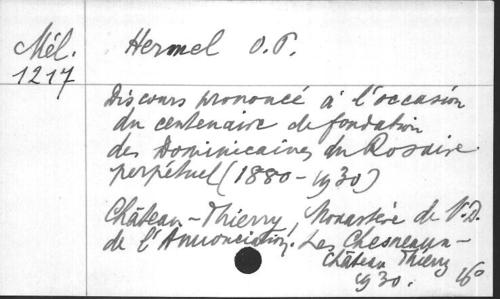 Mél.
1217
Hermel O.P.
Discours prononcé à l'occasion
du centenaire de fondation
des Dominicaines du Rosaire
perpétuel (1880-1930)
Château-Thierry, Monastère de N.D.
de l'Annonciation. Les Chesneaux-
Château Thierry
1930. 16°